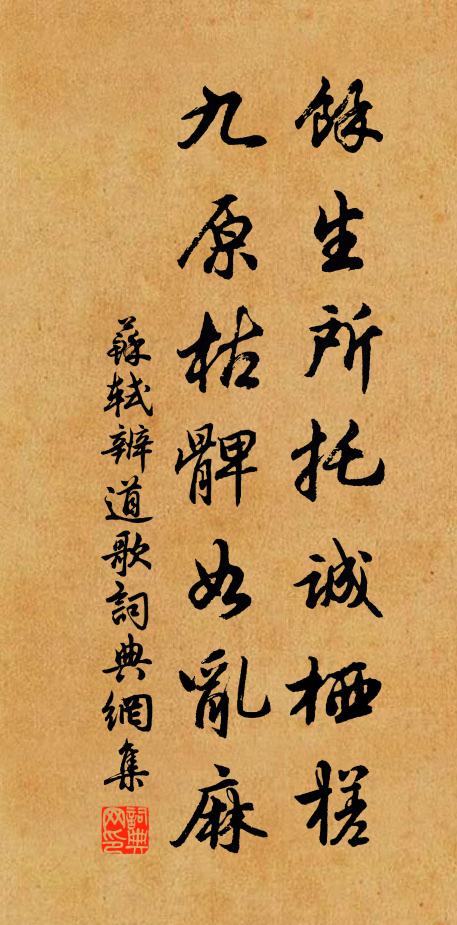 餘生所托誠栖槎
九原枯髀如亂麻
蘇軾辨道歌詞典網集
詞典网印